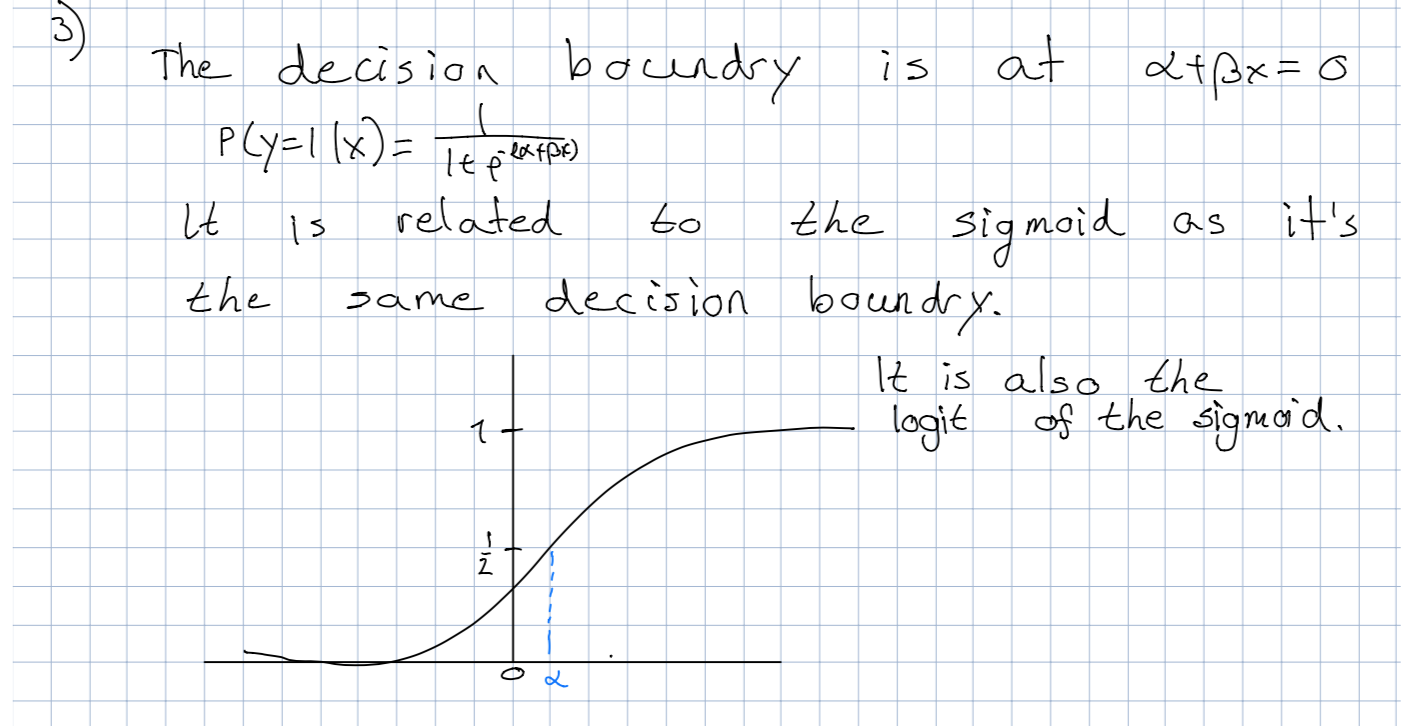 3)
The decision boundry is at α+βx=0
P(y=1|x)= 1/(1+e^-(α+βx))
It is related to the sigmoid as it's
the same decision boundry.
It is also the
logit of the sigmoid.
1
1/2
0 α